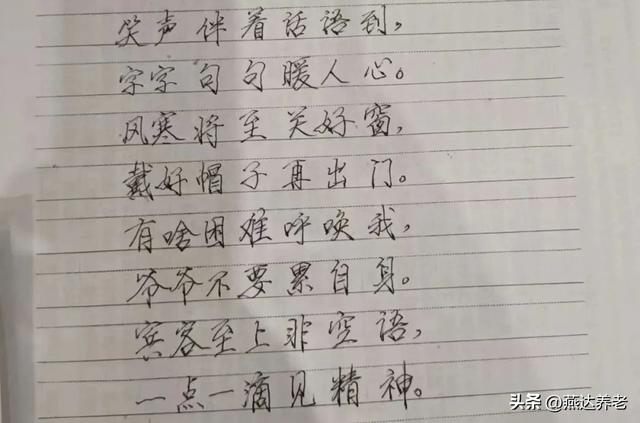 笑声伴着话语到，
字字句句暖人心。
风寒将至关好窗，
戴好帽子再出门。
有啥困难呼唤我，
爷爷不要累自身。
宾客至上非空语，
一点一滴见精神。
头条 @燕达养老